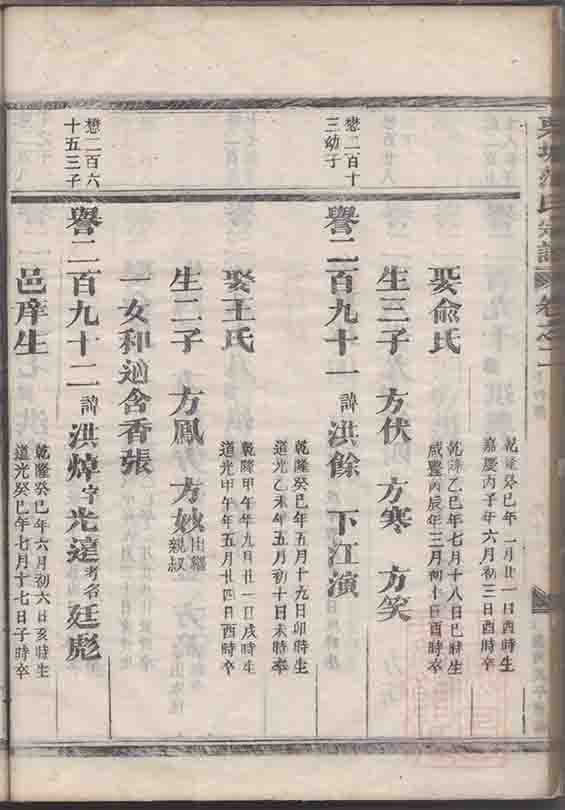 氏宗譜 卷之二
乾隆癸巳年一月廿一日酉時生
嘉慶丙子年六月初三日酉時卒
娶俞氏
乾隆乙巳年七月十八日巳時生
咸豐丙辰年三月初十日酉時卒
生三子 方伏 方寒 方笑
懋二百十
三幼子
譽二百九十一 諱 洪餘 下江演
乾隆癸巳年五月十九日卯時生
道光乙未年五月初十日未時卒
娶王氏
乾隆甲午年九月廿一日戌時生
道光甲午年五月廿四日酉時卒
生二子 方鳳 方妙 出繼親叔
一女和適含香張
懋二百六
十五三子
譽二百九十二 諱 洪焯 字 光達 考名 廷彪
邑庠生
乾隆癸巳年六月初六日亥時生
道光癸巳年七月十七日子時卒